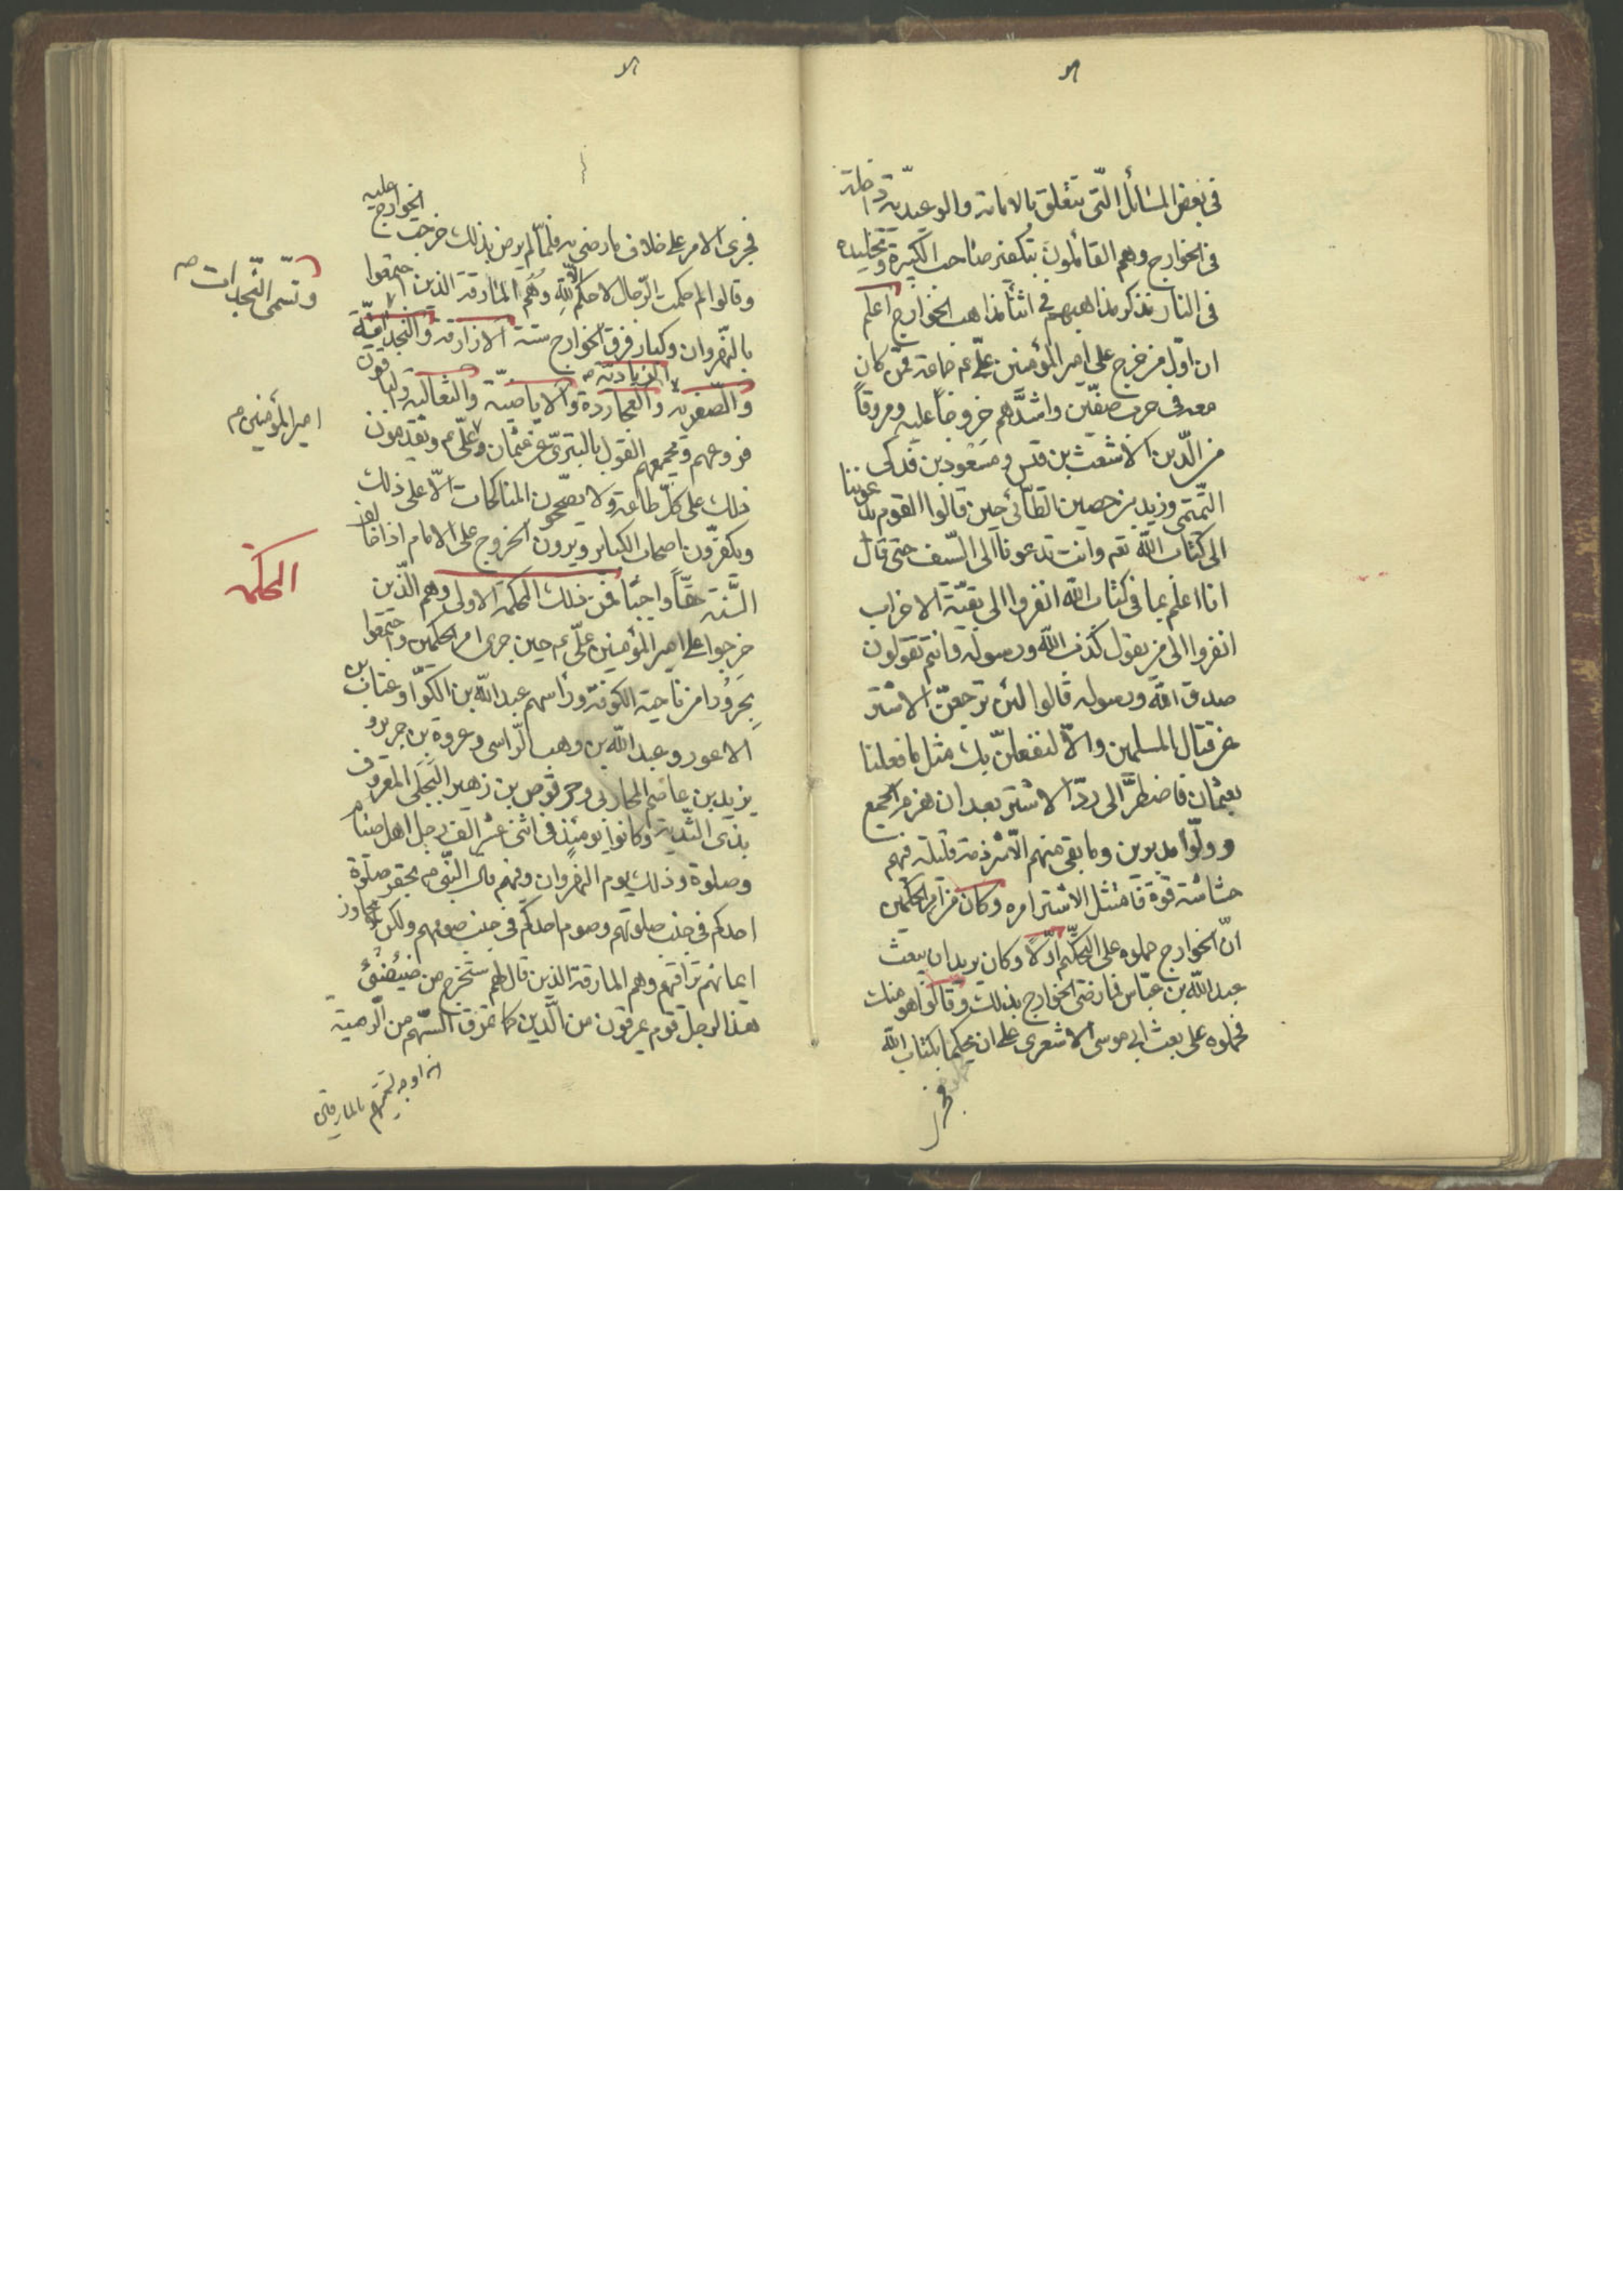 في بعض المسائل التي تتعلق بالامامة والوعيدية داخلة
في الخوارج وهم القائلون بتكفير صاحب الكبيرة وتخليده
في النار نذكر مذاهبهم في اثنا مذاهب الخوارج اعلم
ان اول من خرج على امير المؤمنين علي ع جماعة ممن كان
معه في حرب صفين واشدهم خروجا عليه ومروقا
من الدين الاشعث بن قيس ومسعود بن فدكى
التميمي وزيد بن حصين الطائي حين قالوا القوم يدعوننا
الى كتاب الله تعم وانت تدعونا الى السيف حتى قال
انا اعلم بما في كتاب الله انفروا الى بقية الاحزاب
انفروا الى من يقول كذب الله ورسوله وانتم تقولون
صدق الله ورسوله قالوا لئن ترجعن الاشتر
عن قتال المسلمين والا لنفعلن بك مثل ما فعلنا
بعثمان فاضطر الى رد الاشتر بعد ان هزم الجمع
وولوا مدبرين وما بقي منهم الا شرذمة قليلة فيهم
حشاشة قوة فامتثل الاشتر امره وكان من امر الحكمين
ان الخوارج حملوه على التحكيم اولا وكان يريد ان يبعث
عبد الله بن عباس فما رضي الخوارج بذلك وقالوا هو منك
فحملوه على بعث ابي موسى الاشعري على ان يحكما بكتاب الله
فجرى
فجرى الامر على خلاف ما رضي به فلما لم يرض بذلك خرجت الخوارج عليه
وقالوا لم حكمت الرجال لا حكم الا لله وهم المارقة الذين اجتمعوا
بالنهروان وكبار فرق الخوارج ستة الازارقة والنجدات
وتسمى النجدات صح
والصفرية والعجاردة والاباضية والثعالبة والباقون
الزيادية صح
فروعهم ويجمعهم القول بالتبري عن عثمان وعلي ع ويقدمون
امير المؤمنين م
ذلك على كل طاعة ولا يصححون المناكحات الا على ذلك
ويكفرون اصحاب الكباير ويرون الخروج على الامام اذا خالف
السنة حقا واجبا فمن ذلك المحكمة الاولى وهم الذين
المحكمة
خرجوا على امير المؤمنين علي ع حين جرى امر الحكمين واجتمعوا
بحرورا من ناحية الكوفة وراسهم عبد الله بن الكوا وعتاب بن
الاعور وعبد الله بن وهب الراسى وعروة بن جرير و
يزيد بن عاصم المحاربي وحرقوص بن زهير البجلي المعروف
بذى الثدية وكانوا يومئذ في اثنى عشر الف رجل اهل صيام
وصلوة وذلك يوم النهروان وفيهم قال النبي ص يحقر صلوة
احدكم في جنب صلوتهم وصوم احدكم في جنب صومهم ولكن لا يجاوز
ايمانهم تراقيهم وهم المارقة الذين قال لهم ستخرج من ضئضئ
هذا الرجل قوم يمرقون من الدين كما يمرق السهم من الرمية
هذا وجه تسميتهم بالمارقين